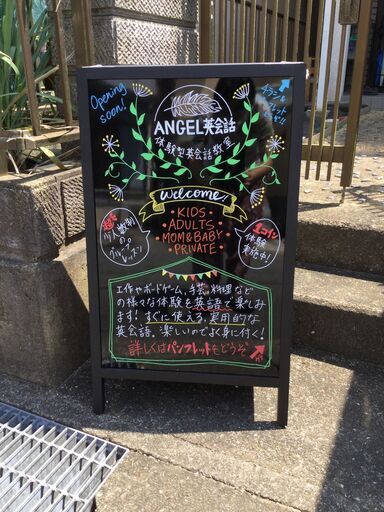 Opening
soon!
チラシ&
ANGEL英会話
体験型英会話教室
Welcome!
・KIDS・
・ADULTS・
・MOM&BABY・
・PRIVATE・
超
少人数制
の。
グループレッスン
1コイン
体験
実施中!
工作やボードゲーム、手芸、料理など
の様々な体験を英語で楽しみ
ます!すぐに使える、実用的な
英会話、楽しいのでよく身に付く!
詳しくはパンフレットをどうぞ